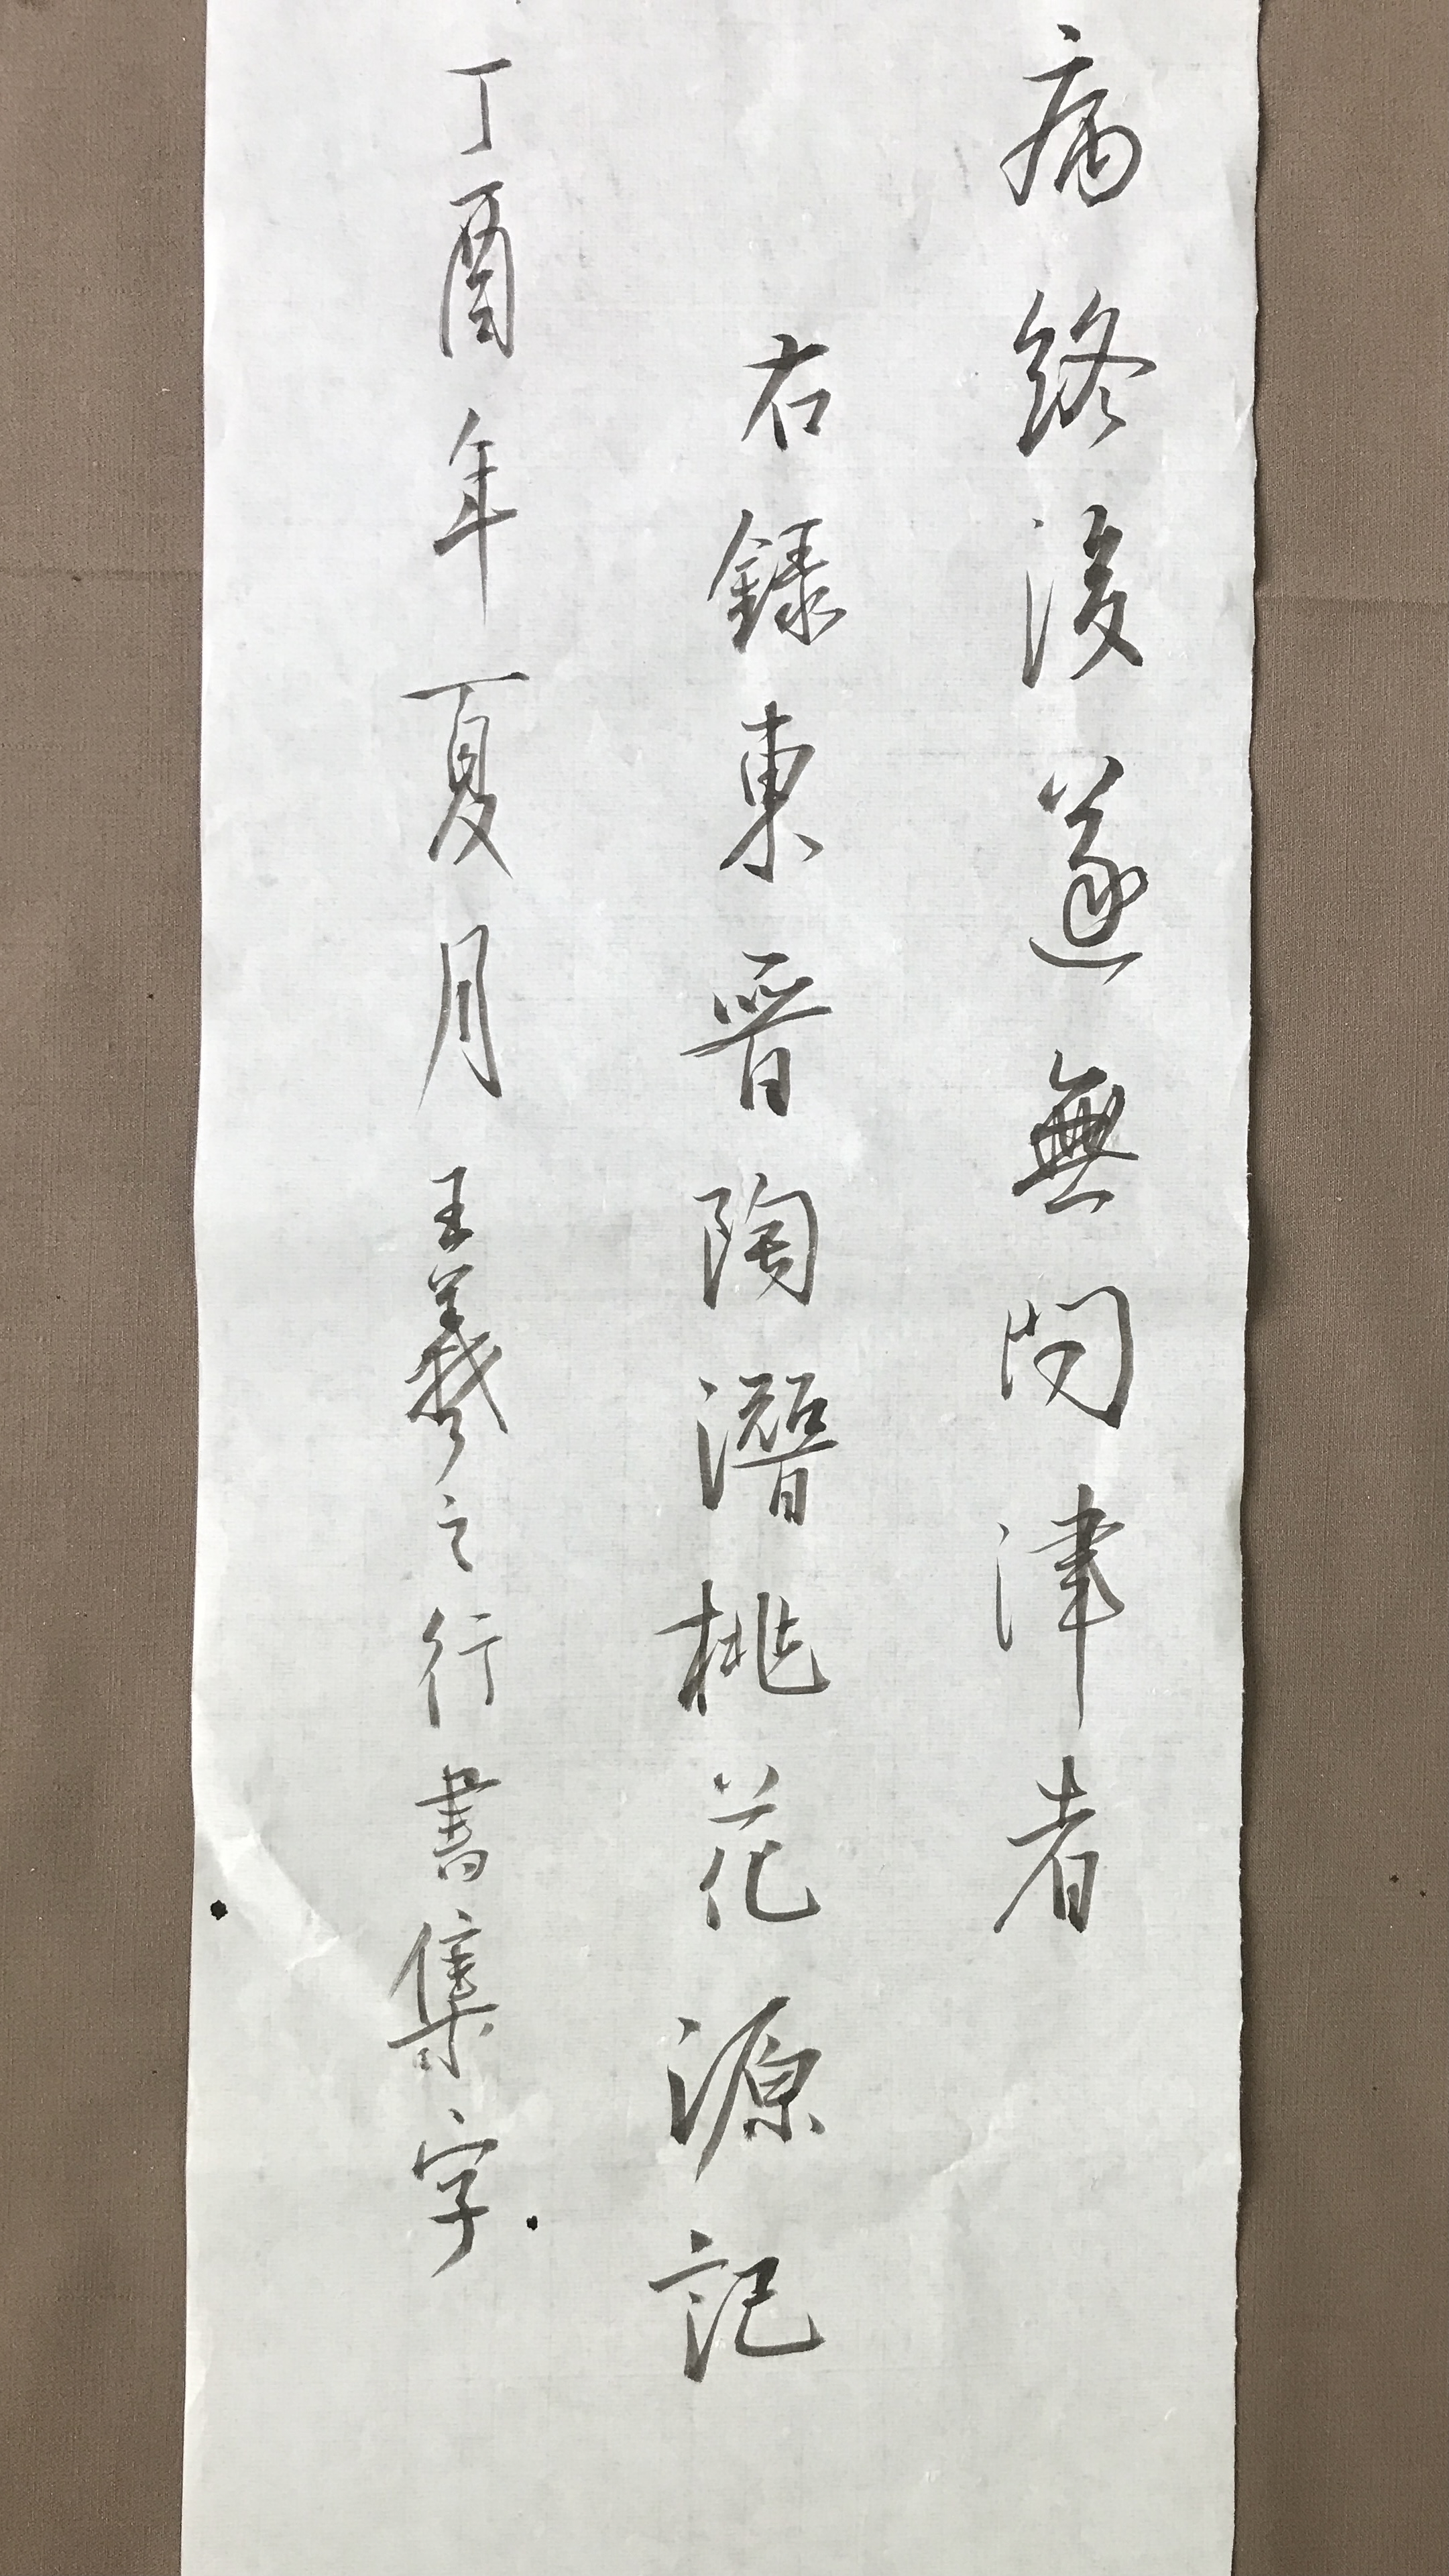 病終後遂無問津者
右錄東晉陶潛桃花源記
丁酉年夏月王羲之行書集字